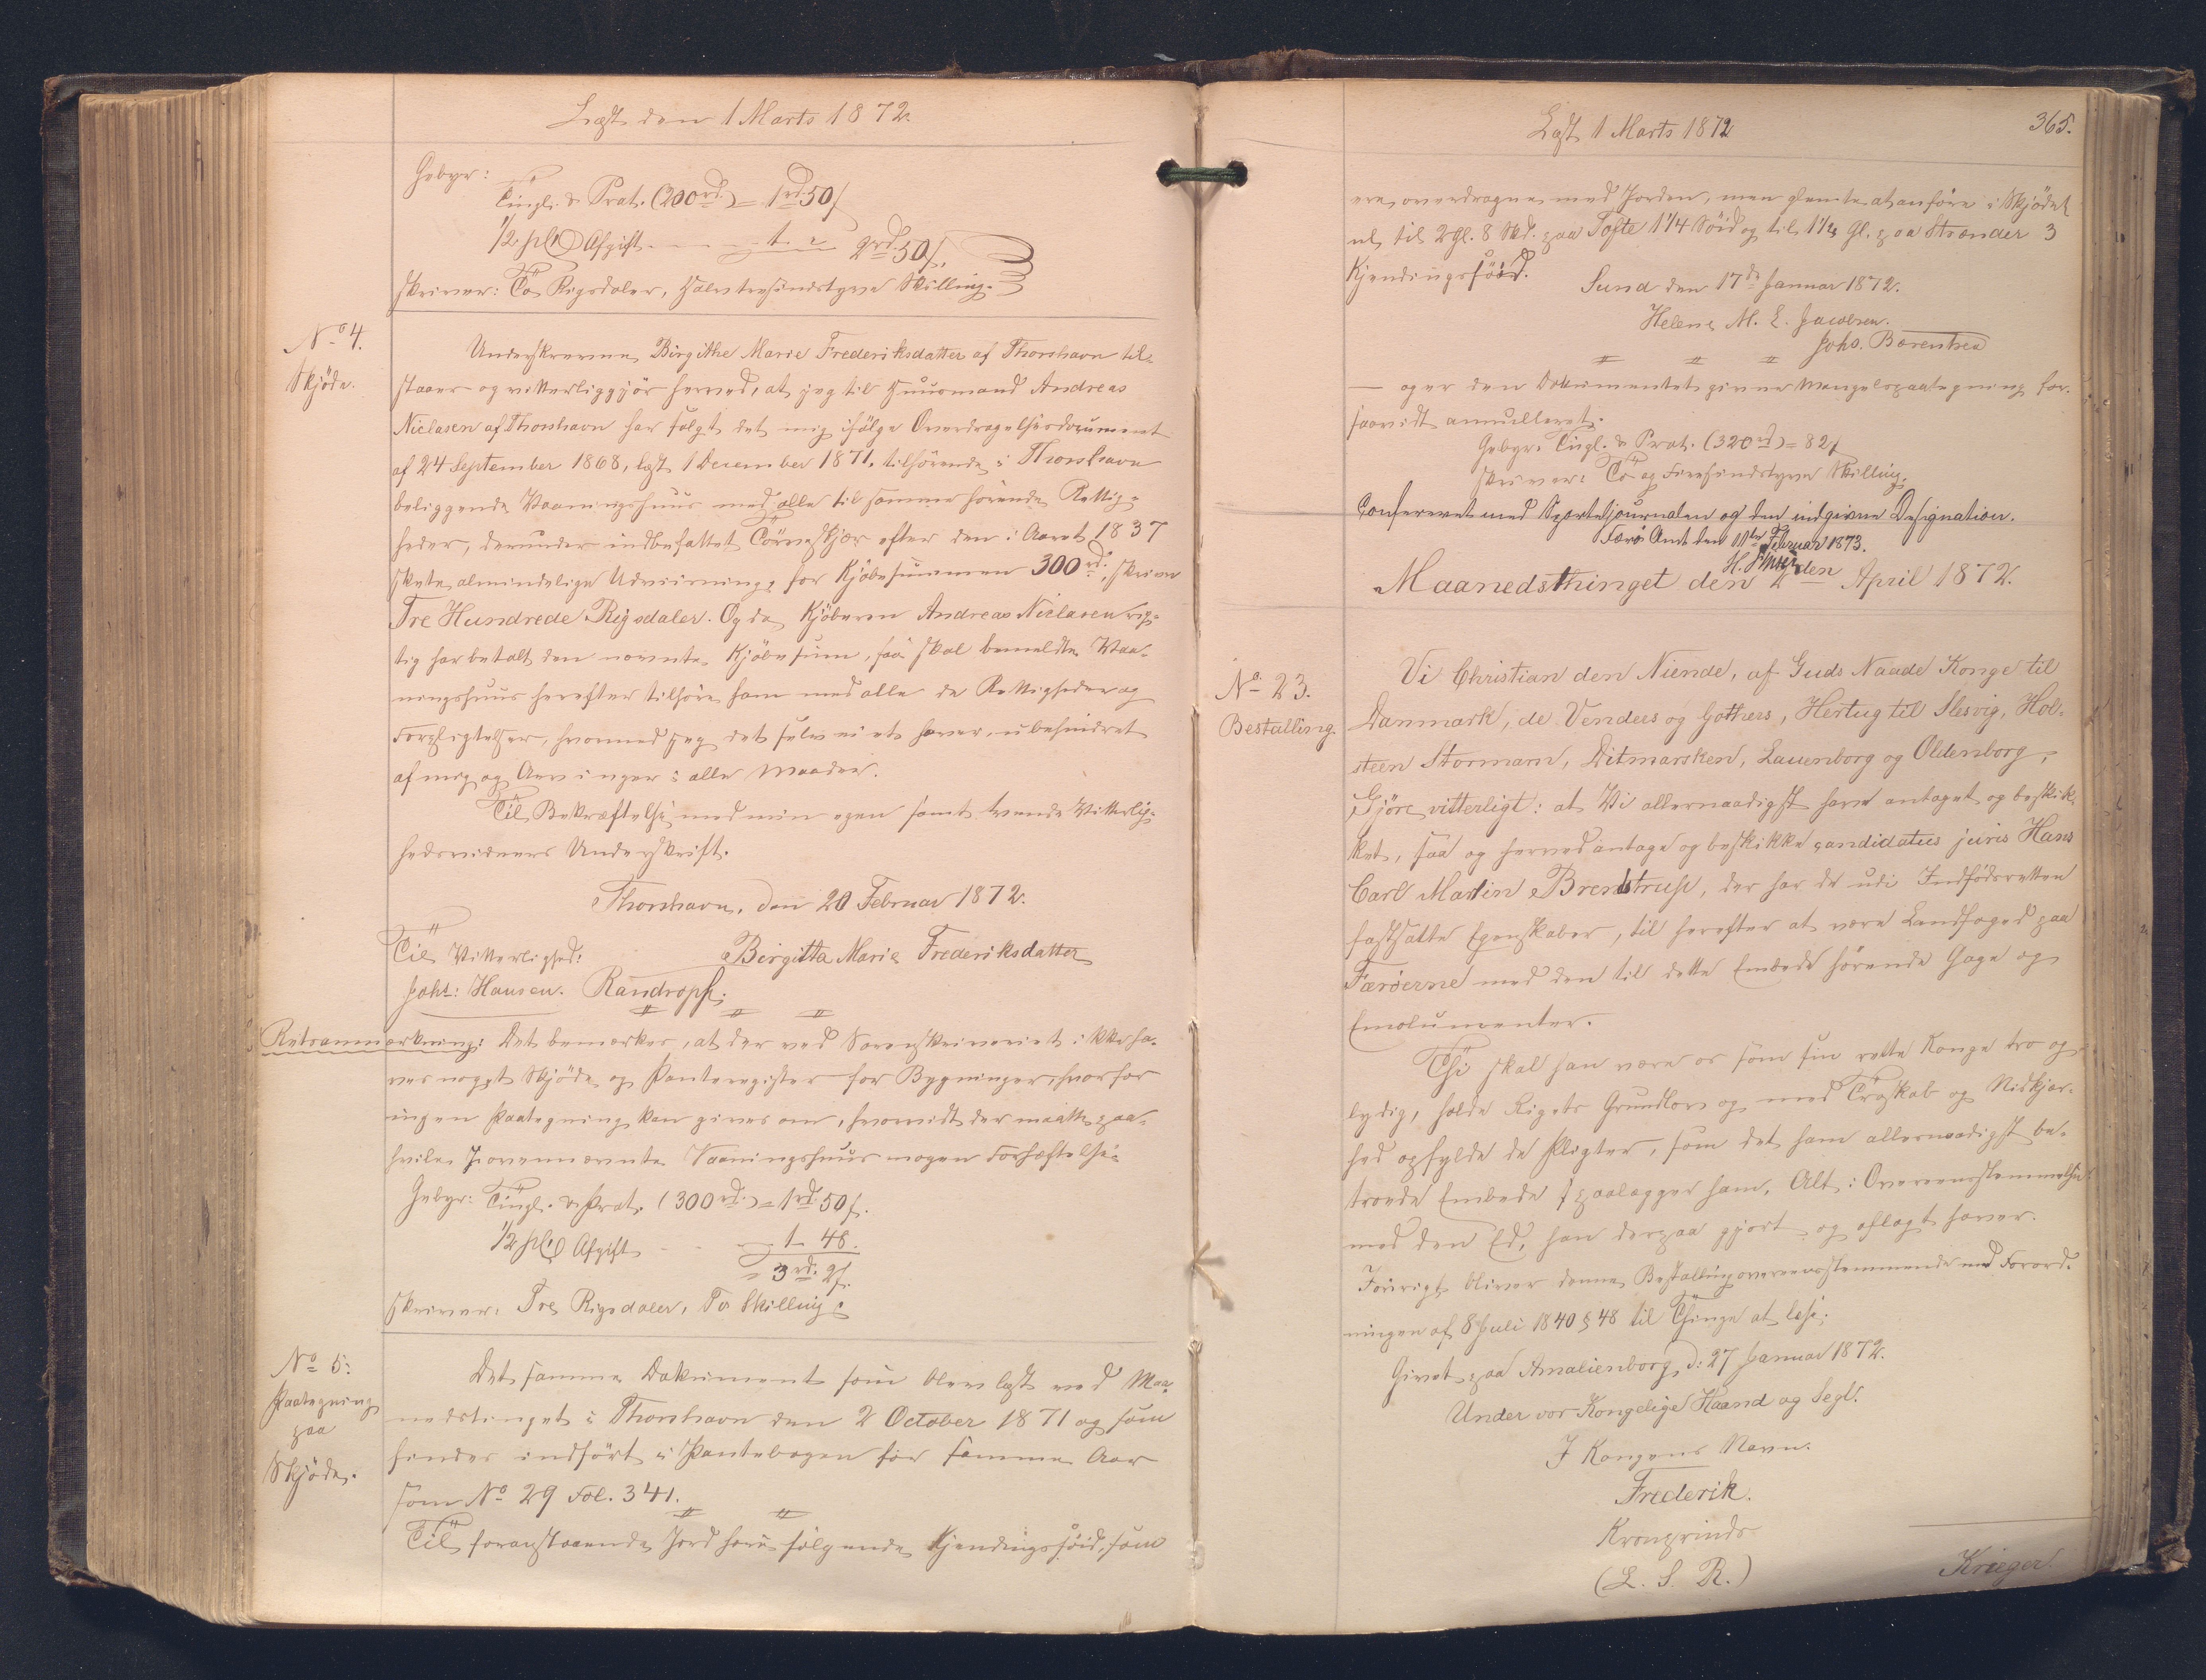 Læst den 1 Marts 1872.
Gebyr:
Tingl. & Prot. (200rd.) = 1rd. 50ſ
1/2 pCt Afgift - - - 1 - " 2rd 50ſ.
skriver: To Rigsdaler, halvtresindstyve Skilling.
No 4.
Skjöde.
Underskrevne Birgithe Marie Frederiksdatter af Thorshavn til-
staaer og vitterliggjör herved, at jeg til Huusmand Andreas
Niclasen af Thorshavn har solgt det mig ifölge Overdragelsesdocument
af 24 September 1868, læst 1 December 1871, tilhörende i Thorshavn
beliggende Vaaningshuus med alle til samme hörende Rettig-
heder, derunder indbefattet Törveskjær efter den i Aaret 1837
skete almindelige Udviisning, for Kjöbesummen 300rd., skriver
Tre Hundrede Rigsdaler. Og da Kjöberen Andreas Niclasen rig-
tig har betalt den nævnte Kjöbesum, saa skal bemeldte Vaa-
ningshuus herefter tilhöre ham med alle de Rettigheder og
Forpligtelser, hvormed jeg det selv eiet haver, ubehindret
af mig og Arvinger i alle Maader.
Til Bekræftelse med min egen samt tvende Vitterlig-
hedsvidners Underskrift.
Thorshavn, den 20 Februar 1872.
Til Vitterlighed: Birgitta Marie Frederiksdatter
Joh: Hansen. Randropp.
Retsanmærkning: Det bemærkes, at der ved Sorenskriveriet ikke ha-
ves noget Skjöde og Panteregister for Bygninger, hvorfor
ingen Paategning kan gives om, hvorvidt der maatte paa-
hvile forennævnte Vaaningshuus nogen Forhæftelse.
Gebyr: Tingl. & Prot. (300rd.) = 1rd. 50ſ.
1/2 pCt Afgift - - - 1 - 48.
= 3rd. 2ſ.
skriver: Tre Rigsdaler, To Skilling.
No 5.
Paategning
paa
Skjöde.
Det samme Dokument som blev læst ved Maa-
nedstinget i Thorshavn den 2 October 1871 og som
findes indfört i Pantebogen for samme Aar
som No 29 Fol. 341.
Til foranstaaende Jord höre fölgende Kjendingsföid, som
Læst 1 Marts 1872
365.
ere overdragne med Jorden, men glemte at anföre i Skjödet
nl. til 2 Gl. 8 Skd. paa Tofte 1 1/4 Söid og til 1 1/2 Gl. paa Strænder 3
Kjendingsföid.
Sund den 17de Januar 1872.
Helene M. E. Jacobsen.
Johs. Bærentsen
— og er den Dokumentet givne Mangelspaategning for-
saavidt annulleret.
Gebyr. Tingl. & Prot. (320rd) = 82ſ
skriver: To og Firesindstyve Skilling.
Confereret med Sportelsjournalen og den indgivne Designation.
Færø Amt den 11te Februar 1873.
H. Finsen
Maanedsthinget den 2den April 1872.
No 23.
Bestalling.
Vi Christian den Niende, af Guds Naade Konge til
Danmark, de Venders og Gothers, Hertug til Slesvig, Hol-
steen Stormarn, Ditmarsken, Lauenborg og Oldenborg,
Gjöre vitterligt: at Vi allernaadigst have antaget og beskik-
ket, saa og herved antage og beskikke candidatus juris Hans
Carl Martin Brendstrup, der har de udi Indfödsretten
fastsatte Egenskaber, til herefter at være Landfoged paa
Færöerne med den til dette Embede hörende Gage og
Emolumenter.
Thi skal han være os som sin rette Konge tro og
lydig, holde Rigets Grundlov og med Troskab og Nidkjær-
hed opfylde de Pligter, som det ham allernaadigst be-
troede Embede paalægger ham, Alt i Overeensstemmelse
med den Ed, han derpaa gjort og aflagt haver.
Forövrigt bliver denne Bestalling overeensstemmende med Forord-
ningen af 8 Juli 1840 § 48 til Thinge at læse.
Givet paa Amalienborg, d: 27 Januar 1872.
Under vor Kongelige Haand og Segl.
I Kongens Navn.
Frederik.
Kronprinds
(L. S. R.)
Krieger.